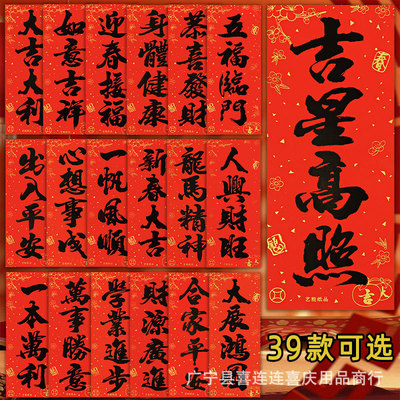 大吉大利
如意吉祥
迎春接福
身體健康
恭喜發財
五福臨門
出入平安
心想事成
一帆風順
新春大吉
龍馬精神
人興財旺
一本萬利
萬事勝意
學業進步
財源廣進
合家平
大展鴻
吉星高照
春
福
大吉
艺毅纸品
39款可选
广宁县喜连连喜庆用品商行